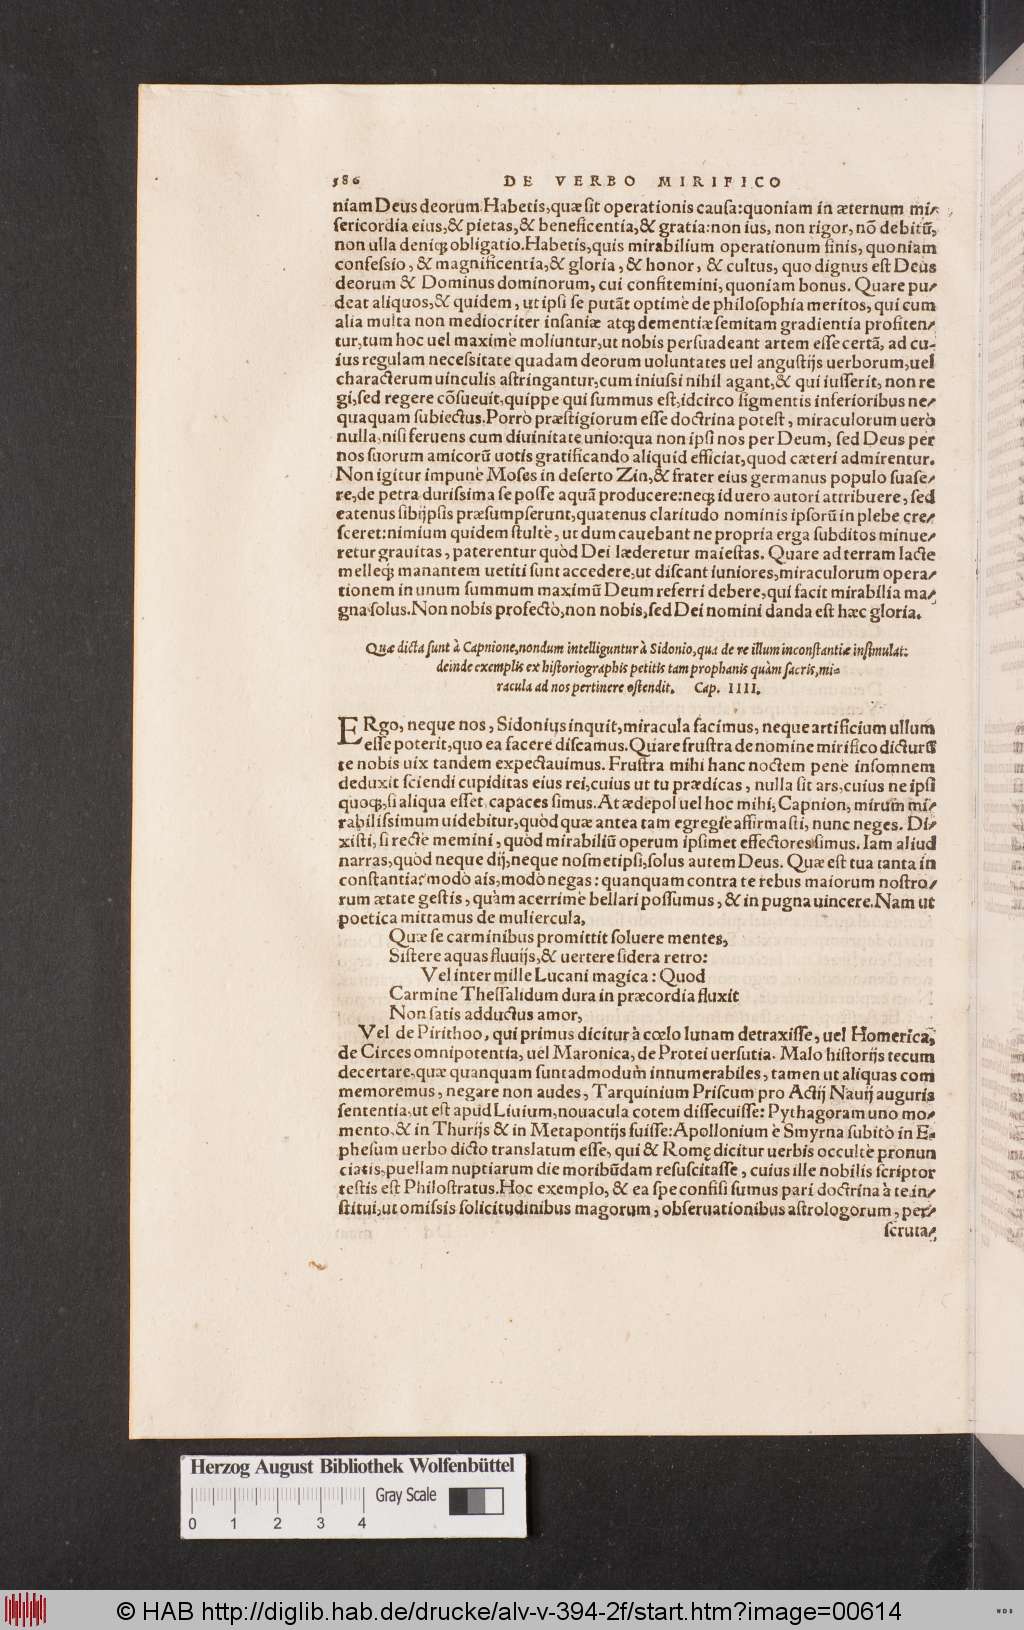 586 DE VERBO MIRIFICO
niam Deus deorum. Habetis, quæ sit operationis causa: quoniam in æternum mi-
sericordia eius, & pietas, & beneficentia, & gratia: non ius, non rigor, nõ debitũ,
non ulla deniq; obligatio. Habetis, quis mirabilium operationum finis, quoniam
confessio, & magnificentia, & gloria, & honor, & cultus, quo dignus est Deus
deorum & Dominus dominorum, cui confitemini, quoniam bonus. Quare pu-
deat aliquos, & quidem, ut ipsi se putãt optime de philosophia meritos, qui cum
alia multa non mediocriter insaniæ atq; dementiæ semitam gradientia profiten-
tur, tum hoc uel maximè moliuntur, ut nobis persuadeant artem esse certã, ad cu-
ius regulam necessitate quadam deorum uoluntates uel angustijs uerborum, uel
characterum uinculis astringantur, cum iniussi nihil agant, & qui iusserit, non re
gi, sed regere cõsueuit, quippe qui summus est, idcirco figmentis inferioribus ne-
quaquam subiectus. Porrò præstigiorum esse doctrina potest, miraculorum uerò
nulla, nisi feruens cum diuinitate unio: qua non ipsi nos per Deum, sed Deus per
nos suorum amicorũ uotis gratificando aliquid efficiat, quod cæteri admirentur.
Non igitur impunè Moses in deserto Zin, & frater eius germanus populo suase-
re, de petra durissima se posse aquã producere: neq; id uero autori attribuere, sed
eatenus sibijpsis præsumpserunt, quatenus claritudo nominis ipsorũ in plebe cre-
sceret: nimium quidem stultè, ut dum cauebant ne propria erga subditos minue-
retur grauitas, paterentur quòd Dei læderetur maiestas. Quare ad terram lacte
melleq; manantem uetiti sunt accedere, ut discant iuniores, miraculorum opera-
tionem in unum summum maximũ Deum referri debere, qui facit mirabilia ma-
gna solus. Non nobis profectò, non nobis, sed Dei nomini danda est hæc gloria.
Quæ dicta sunt à Capnione, nondum intelliguntur à Sidonio, qua de re illum inconstantiæ insimulat:
deinde exemplis ex historiographis petitis tam prophanis quàm sacris, mi-
racula ad nos pertinere ostendit. Cap. IIII.
ERgo, neque nos, Sidonius inquit, miracula facimus, neque artificium ullum
esse poterit, quo ea facere discamus. Quare frustra de nomine mirifico dicturũ
te nobis uix tandem expectauimus. Frustra mihi hanc noctem penè insomnem
deduxit sciendi cupiditas eius rei, cuius ut tu prædicas, nulla sit ars, cuius ne ipsi
quoq;, si aliqua esset, capaces simus. At ædepol uel hoc mihi, Capnion, mirum mi-
rabilissimum uidebitur, quòd quæ antea tam egregiè affirmasti, nunc neges. Di-
xisti, si rectè memini, quòd mirabiliũ operum ipsimet effectores simus. Iam aliud
narras, quòd neque dij, neque nosmetipsi, solus autem Deus. Quæ est tua tanta in
constantia? modò ais, modò negas: quanquam contra te rebus maiorum nostro-
rum ætate gestis, quàm acerrimè bellari possumus, & in pugna uincere. Nam ut
poetica mittamus de muliercula,
Quæ se carminibus promittit soluere mentes,
Sistere aquas fluuijs, & uertere sidera retro:
Vel inter mille Lucani magica: Quod
Carmine Thessalidum dura in præcordia fluxit
Non fatis adductus amor,
Vel de Pirithoo, qui primus dicitur à cœlo lunam detraxisse, uel Homerica,
de Circes omnipotentia, uel Maronica, de Protei uersutia. Malo historijs tecum
decertare, quæ quanquam sunt admodum innumerabiles, tamen ut aliquas com
memoremus, negare non audes, Tarquinium Priscum pro Actij Nauij auguris
sententia, ut est apud Liuium, nouacula cotem dissecuisse: Pythagoram uno mo-
mento, & in Thurijs & in Metapontijs fuisse: Apollonium è Smyrna subitò in E-
phesum uerbo dicto translatum esse, qui & Romę dicitur uerbis occultè pronun
ciatis, puellam nuptiarum die moribũdam resuscitasse, cuius ille nobilis scriptor
testis est Philostratus. Hoc exemplo, & ea spe confisi sumus pari doctrina à te in-
stitui, ut omissis solicitudinibus magorum, obseruationibus astrologorum, per-
scruta-
Herzog August Bibliothek Wolfenbüttel
Gray Scale
0 1 2 3 4
© HAB http://diglib.hab.de/drucke/alv-v-394-2f/start.htm?image=00614